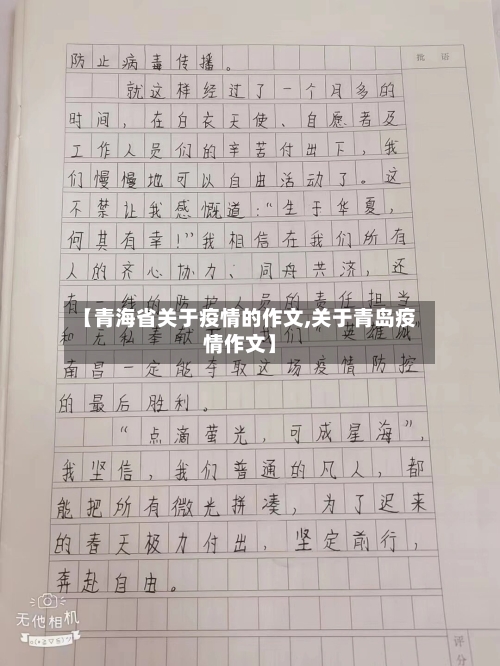 防止病毒传播。
批 语
就这样经过了一个月多的
时间，在白衣天使、自愿者及
工作人员们的辛苦付出下，我
们慢慢地可以自由活动了。这
不禁让我感慨道："生于华夏，
何其有幸！"我相信在我们所有
人的齐心协力、同舟共济，还
有一线的医护人员的责任担当
【青海省关于疫情的作文,关于青岛疫
情作文】
南昌一定能夺取这场疫情防控
的最后胜利。
"点滴萤光，可成星海"，
我坚信，我们普通的凡人，都
能把所有微光拼凑，为了迟来
的春天极力付出，坚定前行，
奔赴自由。
无他相机
评
分